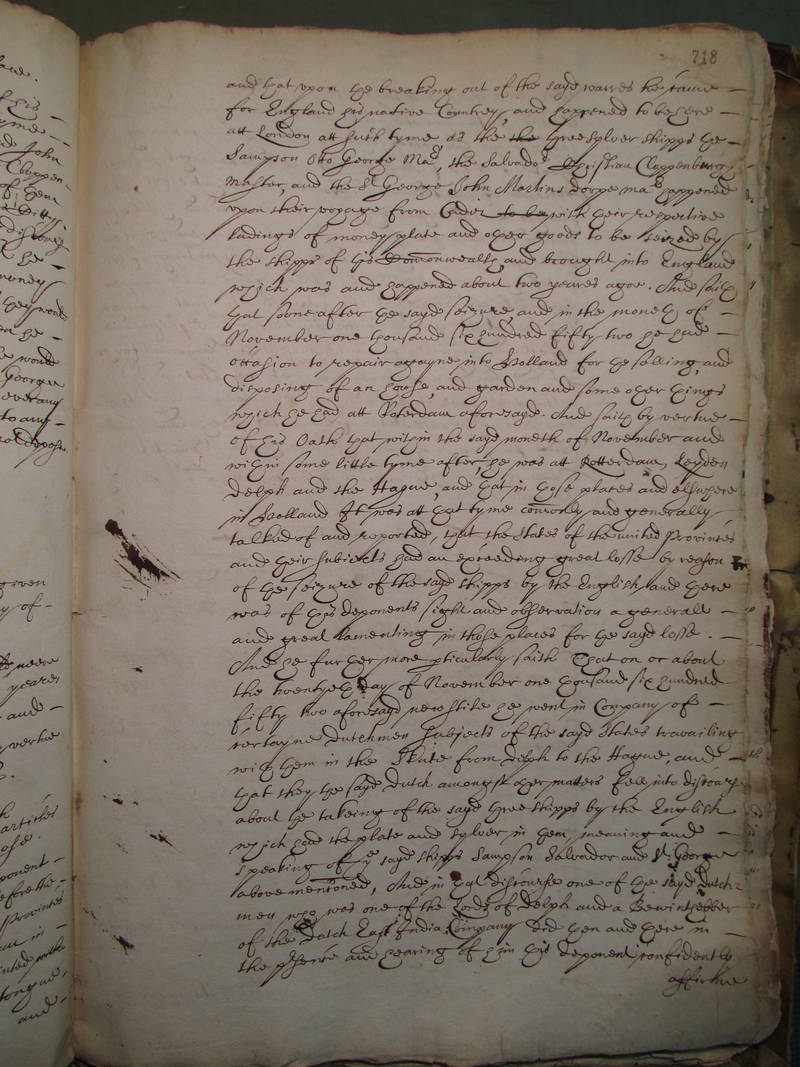 718
and that upon the breaking out of the sayd warres he came
for England his native Countrey, and happened to be here
att London att such tyme as the the three sylver shipps the
Sampson Otto George Mar, the Salvador Christian Cloppenburg
master, and the St George John Martins dorpe mar happened
upon their voyage from Cadiz to be with their respective
ladings of money plate and other goods to be seized by
the shipps of this Commonwealth, and brought into England
which was and happened about two yeares agoe. And saith
that soone after the sayd seizure, and in the moneth of
November one thousand six hundred fifty two he had
occasion to repair agayne into Holland for the selling, and
disposing of an house, and garden and some other things
which he had att Roterdam aforesayd. And saith by vertue
of his Oath that within the sayd moneth of November and
within some little tyme after he was att Rotterdam, Leyden
Delph and the Hague, and that in those places and elsewhere
in Holland It was att that tyme comonly and generally
talked of and reported, that the States of the united Provinces
and their subjects had an exceeding great losse by reason
of the seizure of the sayd shipps by the English and there
was of this deponents sight and observation a generall
and great lamenting in those places for the sayd losse.
And he further more pticularly saith That on or about
the twentyeth day of November one thousand six hundred
fifty two aforesayd new stile he went in Company of
certayne Dutchmen subjects of the sayd States travailing
with them in the Skute from Delph to the Hague, and
that they the sayd Dutch amongst other matters fell into discourse
about the takeing of the sayd three shipps by the English
which had the plate and sylver in them, meaning and
speaking of ye sayd shipps Sampson Salvador and St George
abovementioned, And in that discourse one of the sayd Dutch
men who was one of the Lords of Delph and a Bewinthebber
of the Dutch East India Company did then and there in
the psence and hearing of him this deponent confidently
affirme